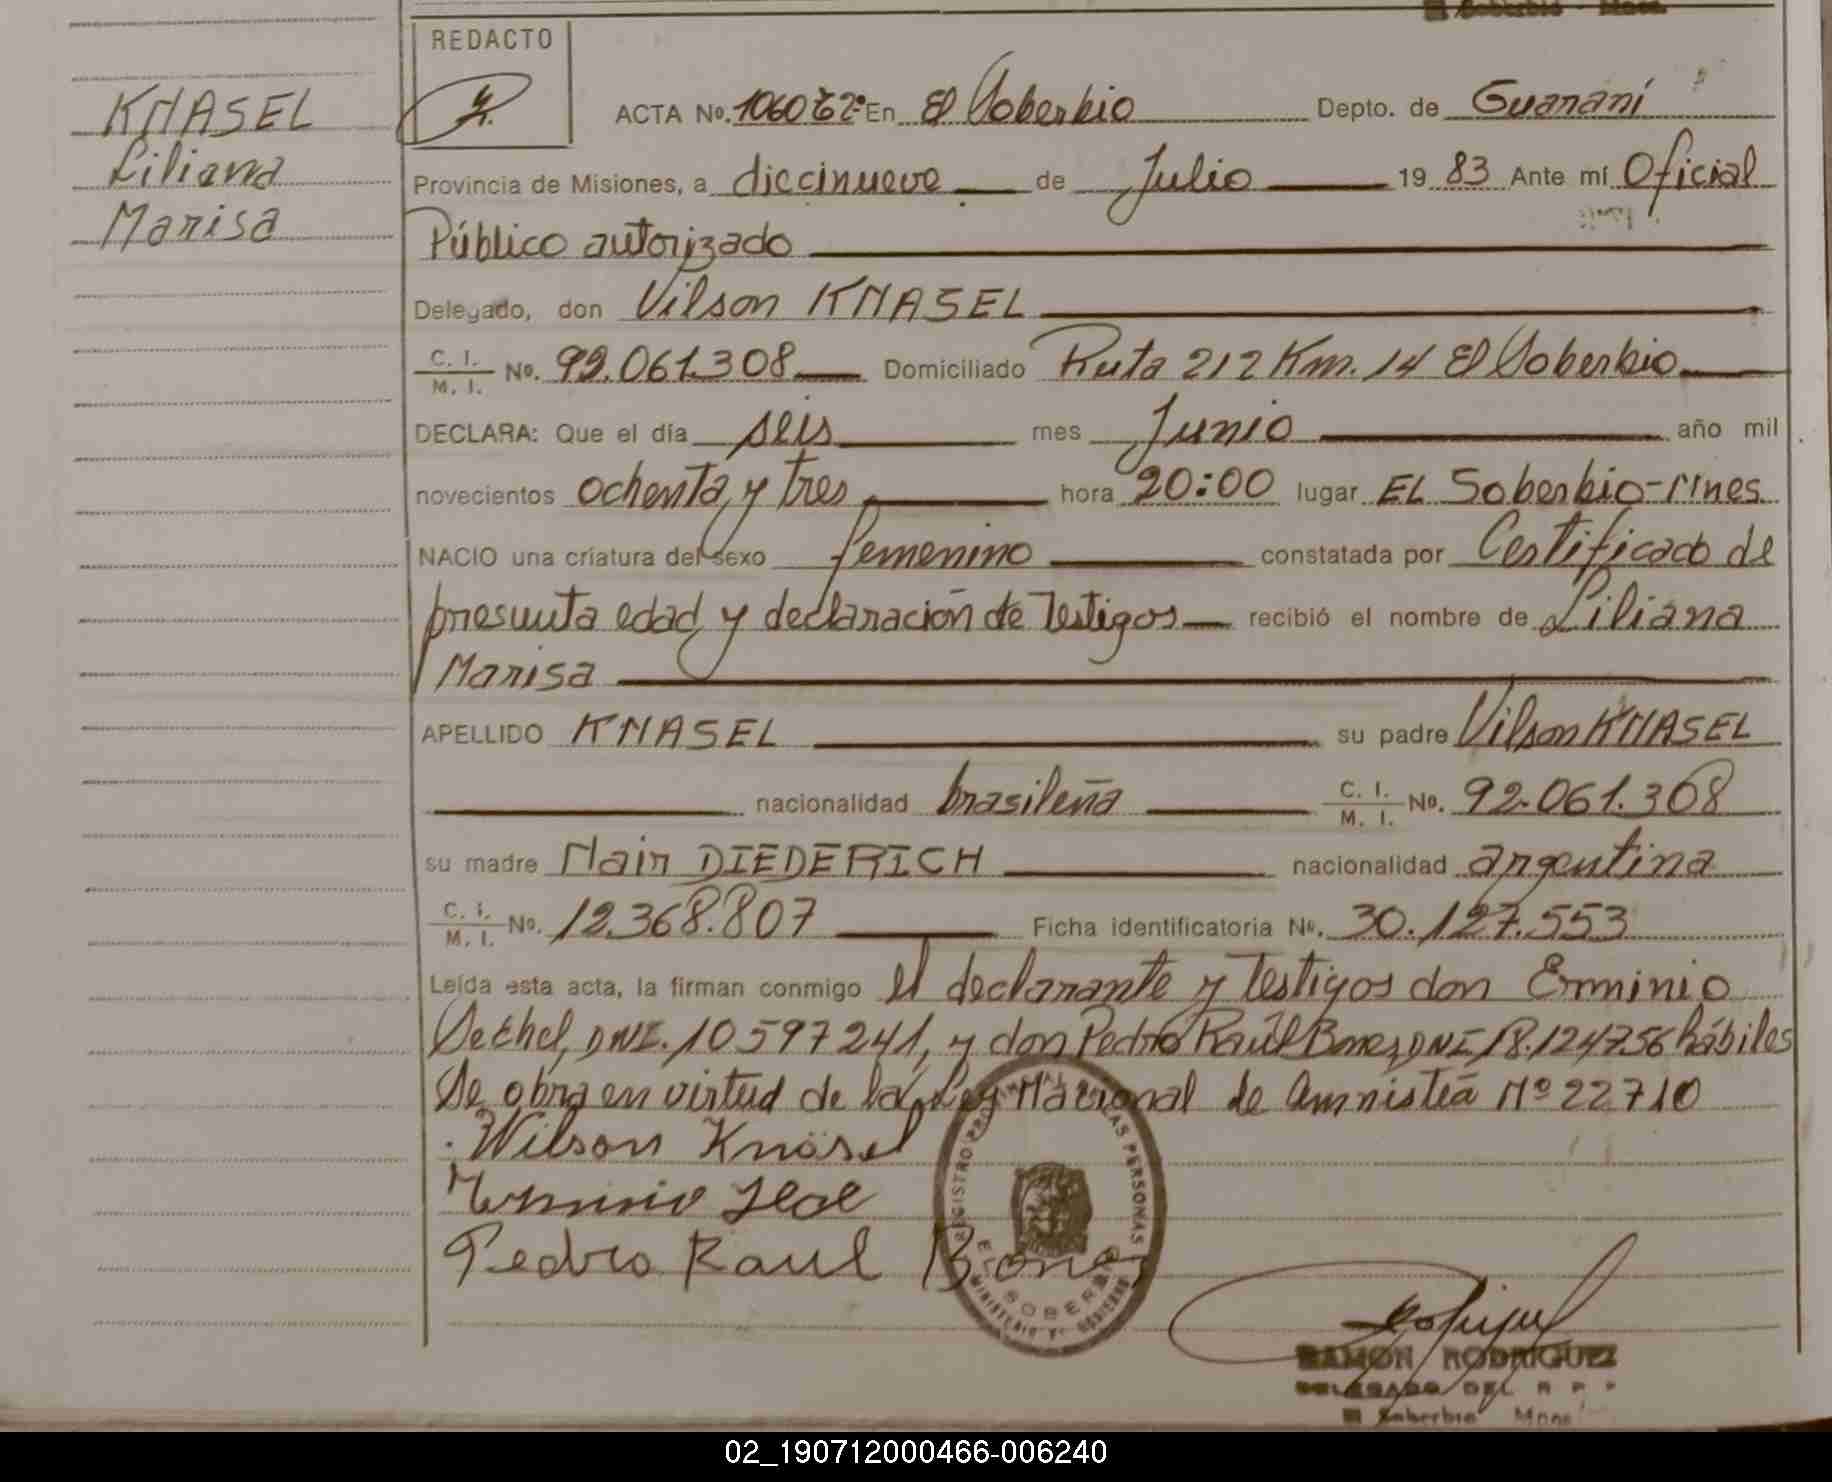 El Soberbio - Mnes.
REDACTO
KNASEL
Liliana
Marisa
ACTA No. 1060 En El Soberbio Depto. de Guaraní
Provincia de Misiones, a diecinueve de Julio 19 83 Ante mí Oficial
Público autorizado
Delegado, don Vilson KNASEL
C. I. / M. I. No. 92.061.308 Domiciliado Ruta 212 Km. 14 El Soberbio
DECLARA: Que el día seis mes Junio año mil
novecientos ochenta y tres hora 20:00 lugar EL Soberbio-Mnes
NACIO una criatura del sexo femenino constatada por Certificado de
presunta edad y declaración de Testigos recibió el nombre de Liliana
Marisa
APELLIDO KNASEL su padre Vilson KNASEL
nacionalidad brasileña C. I. / M. I. No. 92.061.308
su madre Nair DIEDERICH nacionalidad argentina
C. I. / M. I. No. 12.368.807 Ficha identificatoria No. 30.127.553
Leída esta acta, la firman conmigo el declarante y Testigos don Erminio
DNI. 10597241, y don Pedro Raúl DNI 18.124756 hábiles
Se obra en virtud de la Ley Nacional de Amnistía Nº 22710
Wilson Knäsel
Pedro Raul
REGISTRO PROVINCIAL DE LAS PERSONAS
EL SOBERBIO
MINISTERIO DE GOBIERNO
RAMON RODRIGUEZ
DELEGADO DEL R P P
El Soberbio Mnes
02_190712000466-006240